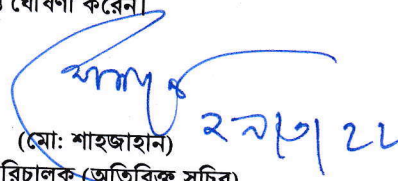 ঘোষণা করেন।
২৭/৩/২২
(মো: শাহজাহান)
রিচালক (অতিরিক্ত সচিব)